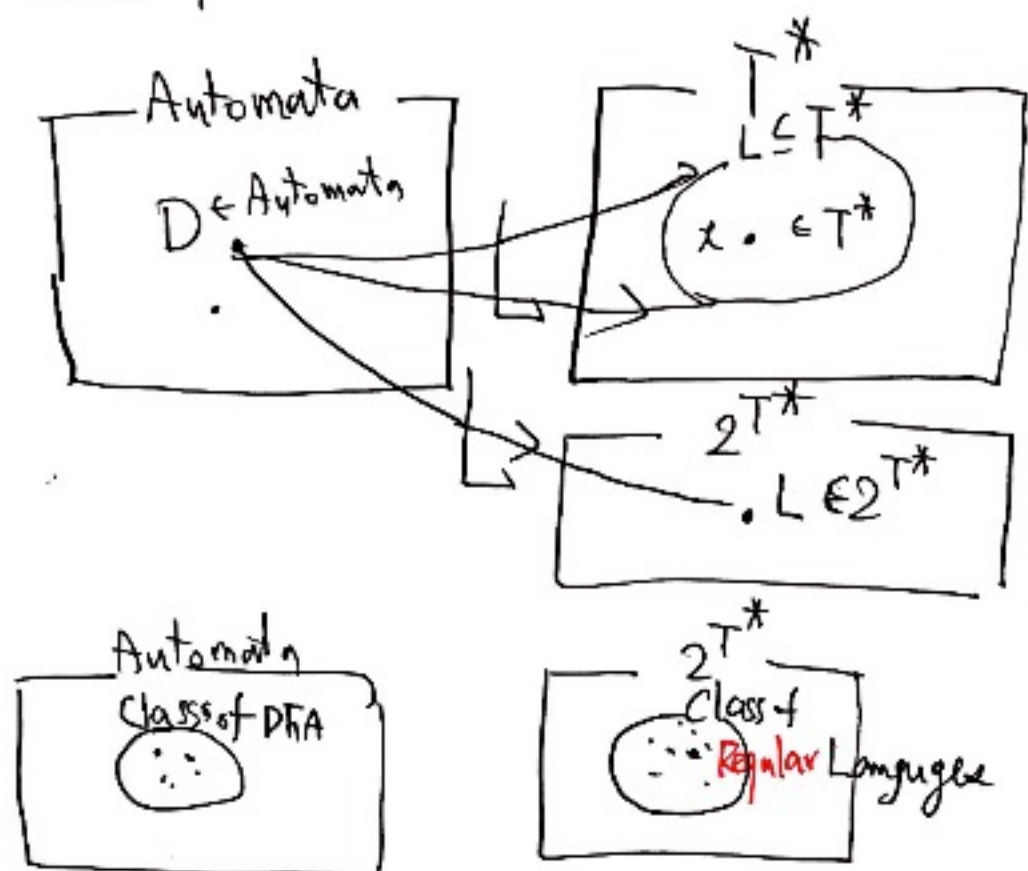 Automata
D ∈ Automata
T*
L ⊆ T*
x . ∈ T*
L
L
2^T*
. L ∈ 2^T*
Automata
Class of DFA
2^T*
Class of
Regular Languges